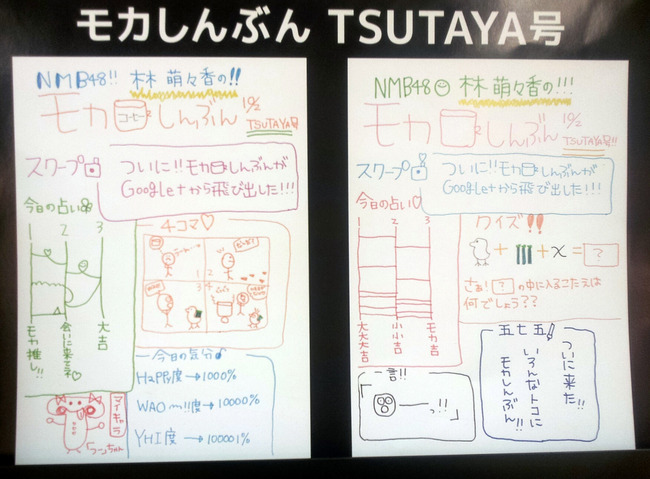 モカしんぶん TSUTAYA号
NMB48!! 林 萌々香の!!
モカ コーヒー しんぶん 10/2
TSUTAYA号
スクープ
ついに!!モカしんぶんが
Google+から飛び出した!!!
今日の占い
1 2 3
モカ推し!!
会いに来てネ♡
大吉
4コマ♡
1
2
3
4
今日の気分♪
HaPPy度→1000%
WAO〜!!度→10000%
YHI度→100001%
マイキャラ
「つー」ちゃん
NMB48 林 萌々香の!!!
モカしんぶん 10/2
TSUTAYA号!!
スクープ
ついに!!モカしんぶんが
Google+から飛び出した!!!
今日の占い♡
1 2 3
大大大吉
小小吉
モカ吉
クイズ!!
+ + x = ?
さぁ! ? の中に入るこたえは
何でしょう??
一言!!
「 ーっ!!」
五七五
ついに来た!!
いろんなトコに
モカしんぶん!!